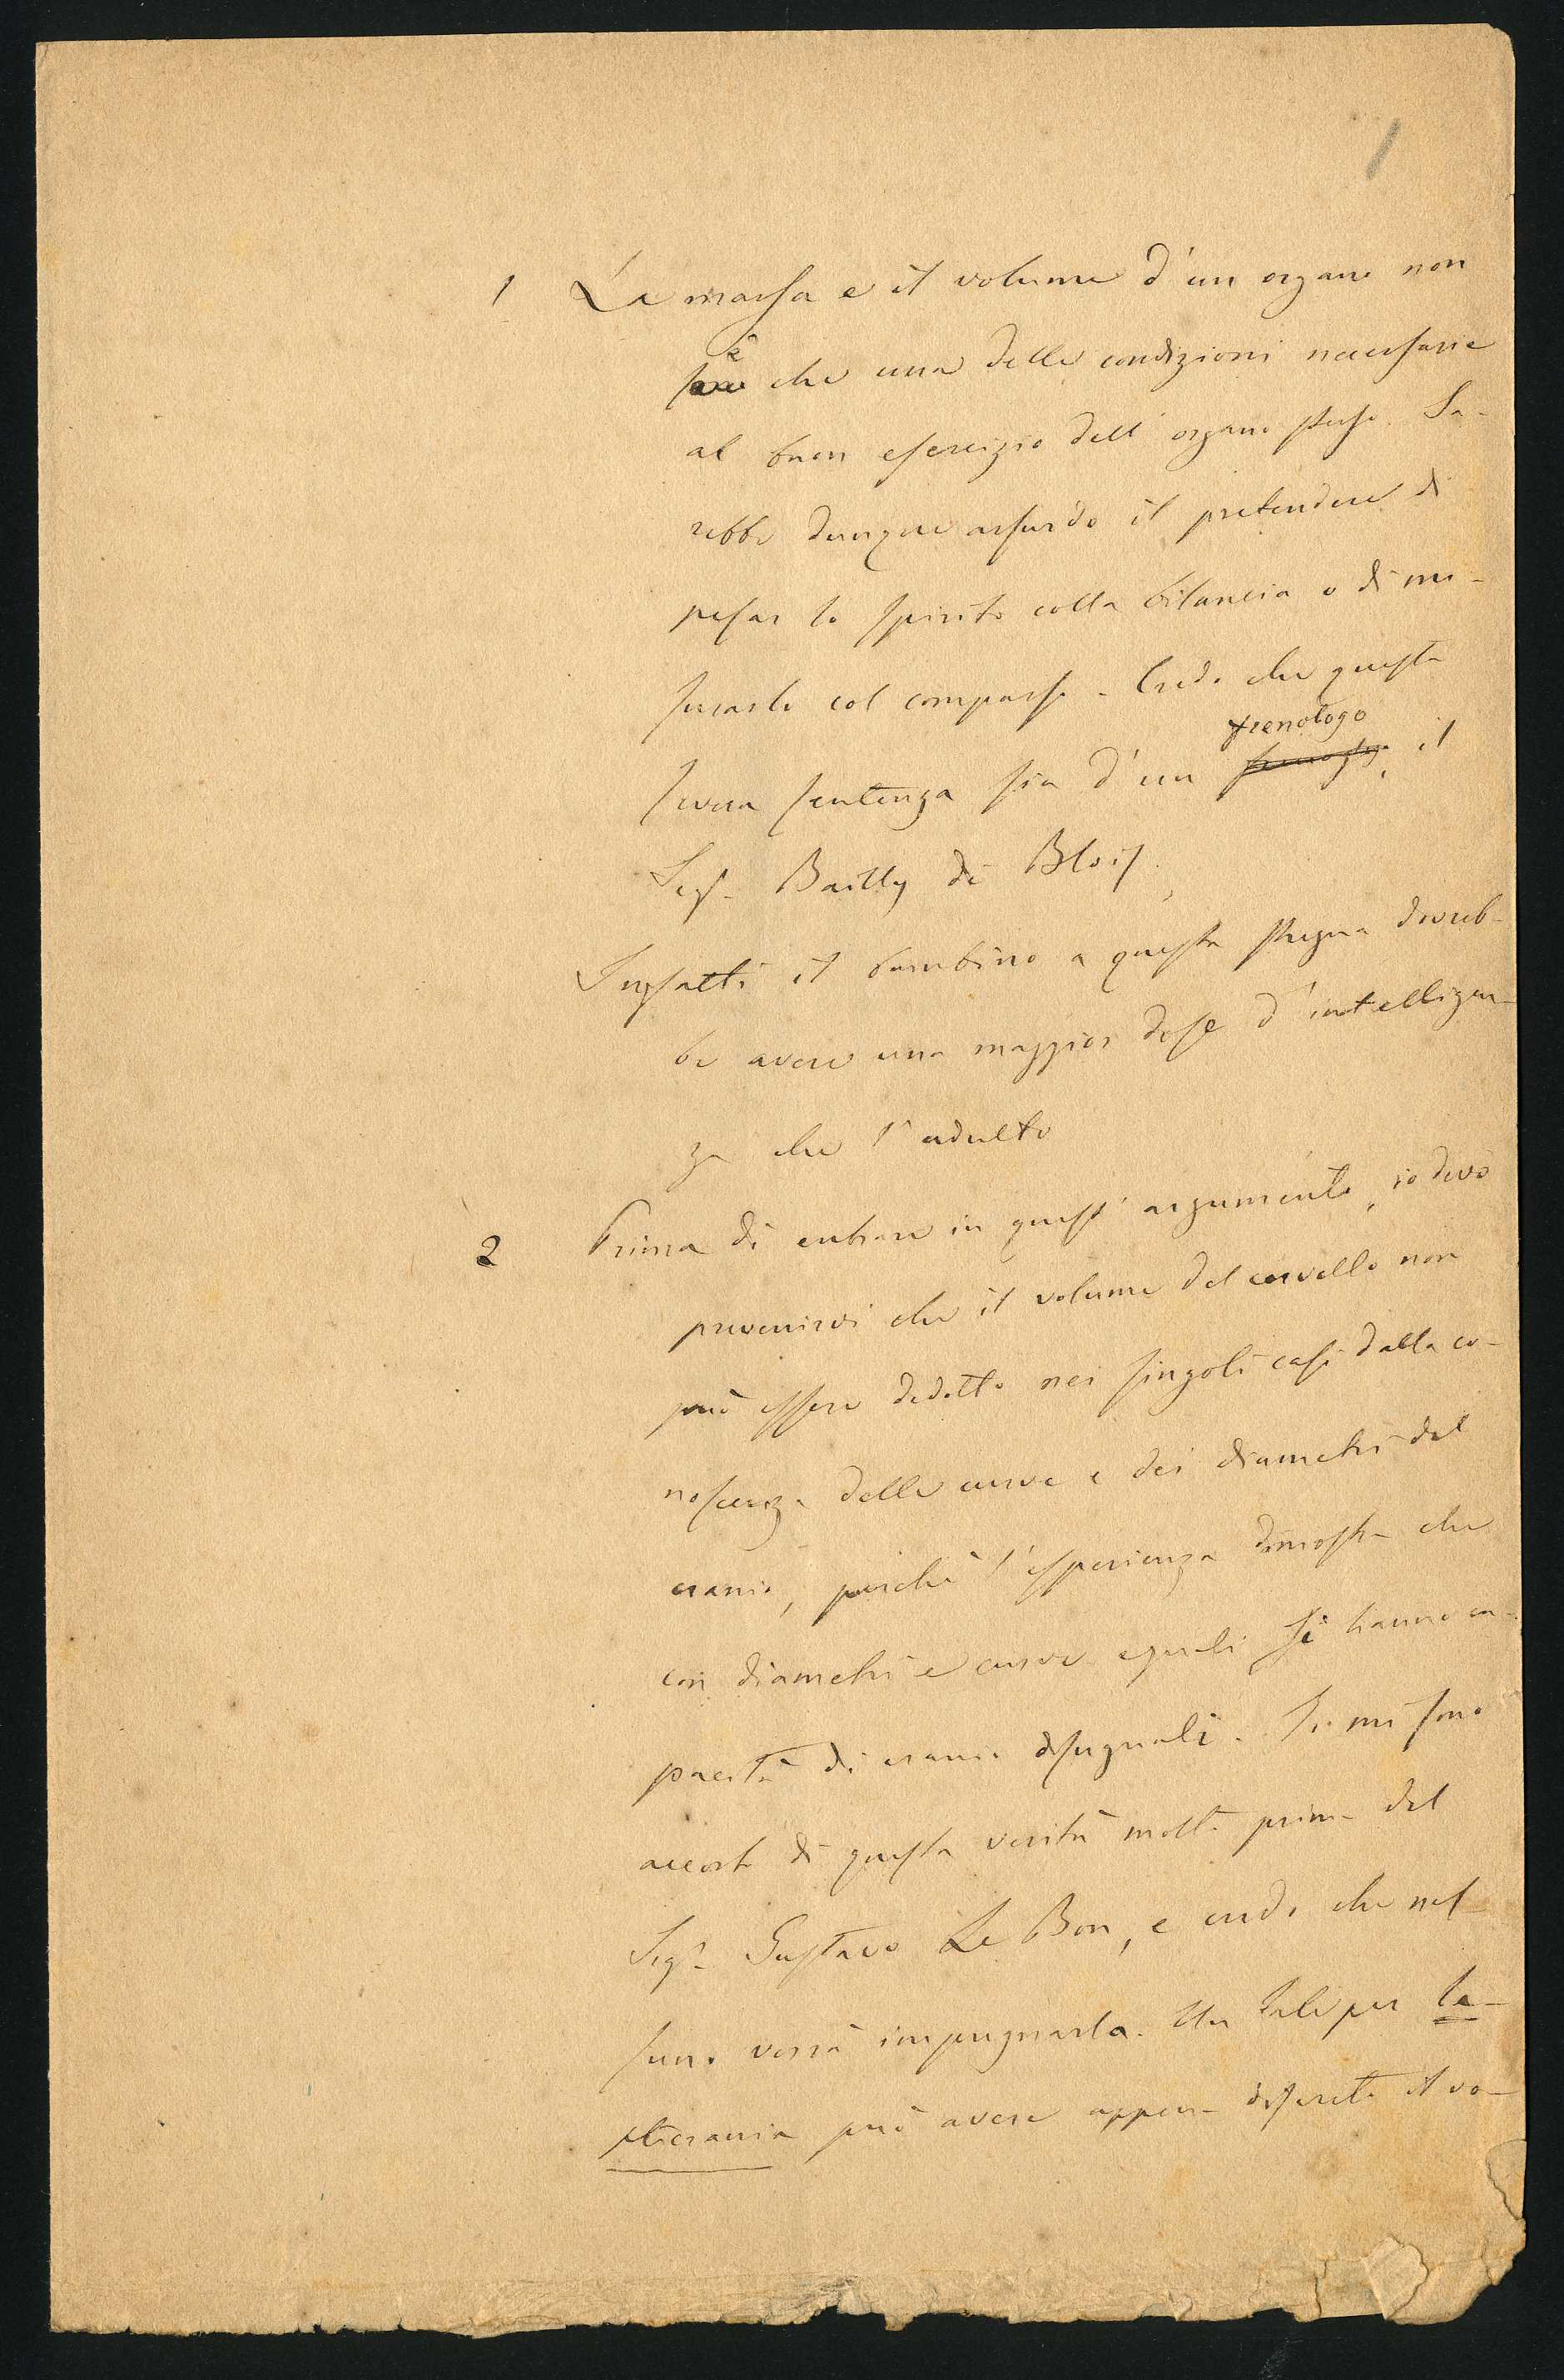 1
1 La massa e il volume d'un organo non
è
che una delle condizioni necessarie
al buon esercizio dell'organo stesso. Sa-
rebbe dunque assurdo il pretendere di
pesar lo spirito colla bilancia o di mi-
surarlo col compasso. Credo che questa
frenologo
severa sentenza sia d'un , il
Sigr. Bailly di Blois.
Infatti il bambino a questa stregua dovreb-
be avere una maggior dose d'intelligen-
za che l'adulto
2 Prima di entrare in quest'argomento, io devo
prevenirvi che il volume del cervello non
può essere dedotto nei singoli casi dalla co-
noscenza delle curve e dei diametri del
cranio, perchè l'esperienza dimostra che
con diametri e curve eguali si hanno ca-
pacità di cranio disuguali. Io mi sono
accorto di questa verità molto prima del
Sigr. Gustavo Le Bon, e credo che nes-
suno verrà impugnarla. Un tale per la-
sticrania può avere appena discreto il vo-